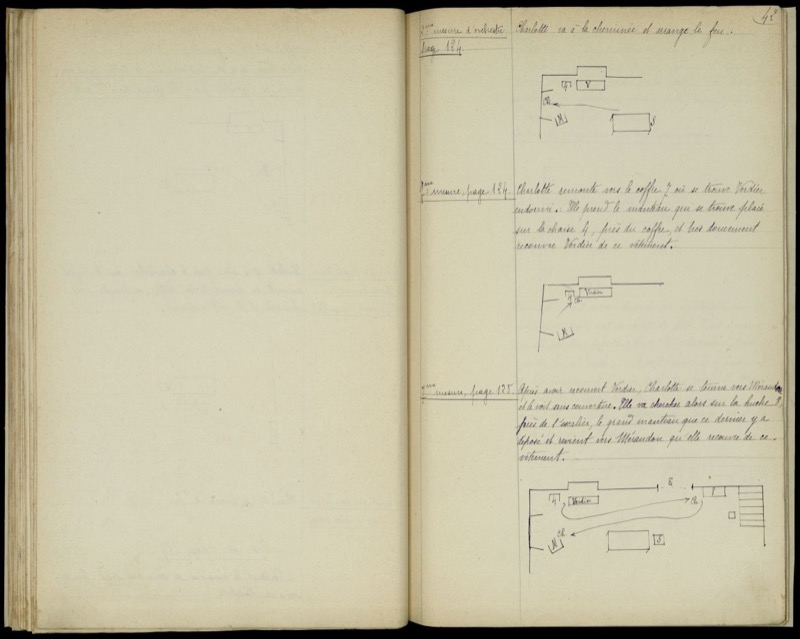 43
mesure d'orchestre
page 124.
Charlotte va à la cheminée et arrange le feu.
4 V
Ch.
M S
mesure, page 124.
Charlotte remonte vers le coffre 7 où se trouve Verdier
endormi. Elle prend le manteau qui se trouve placé
sur la chaise 4, près du coffre, et très doucement
recouvre Verdier de ce vêtement.
4 Verdier
Ch.
M
mesure, page 125.
Après avoir recouvert Verdier, Charlotte se tourne vers Mérandon
et le voit sans couverture. Elle va chercher alors sur la huche 8,
près de l'escalier, le grand manteau que ce dernier y a
déposé et revient vers Mérandon qu'elle recouvre de ce
vêtement.
4 Verdier Ch.
Ch.
M S